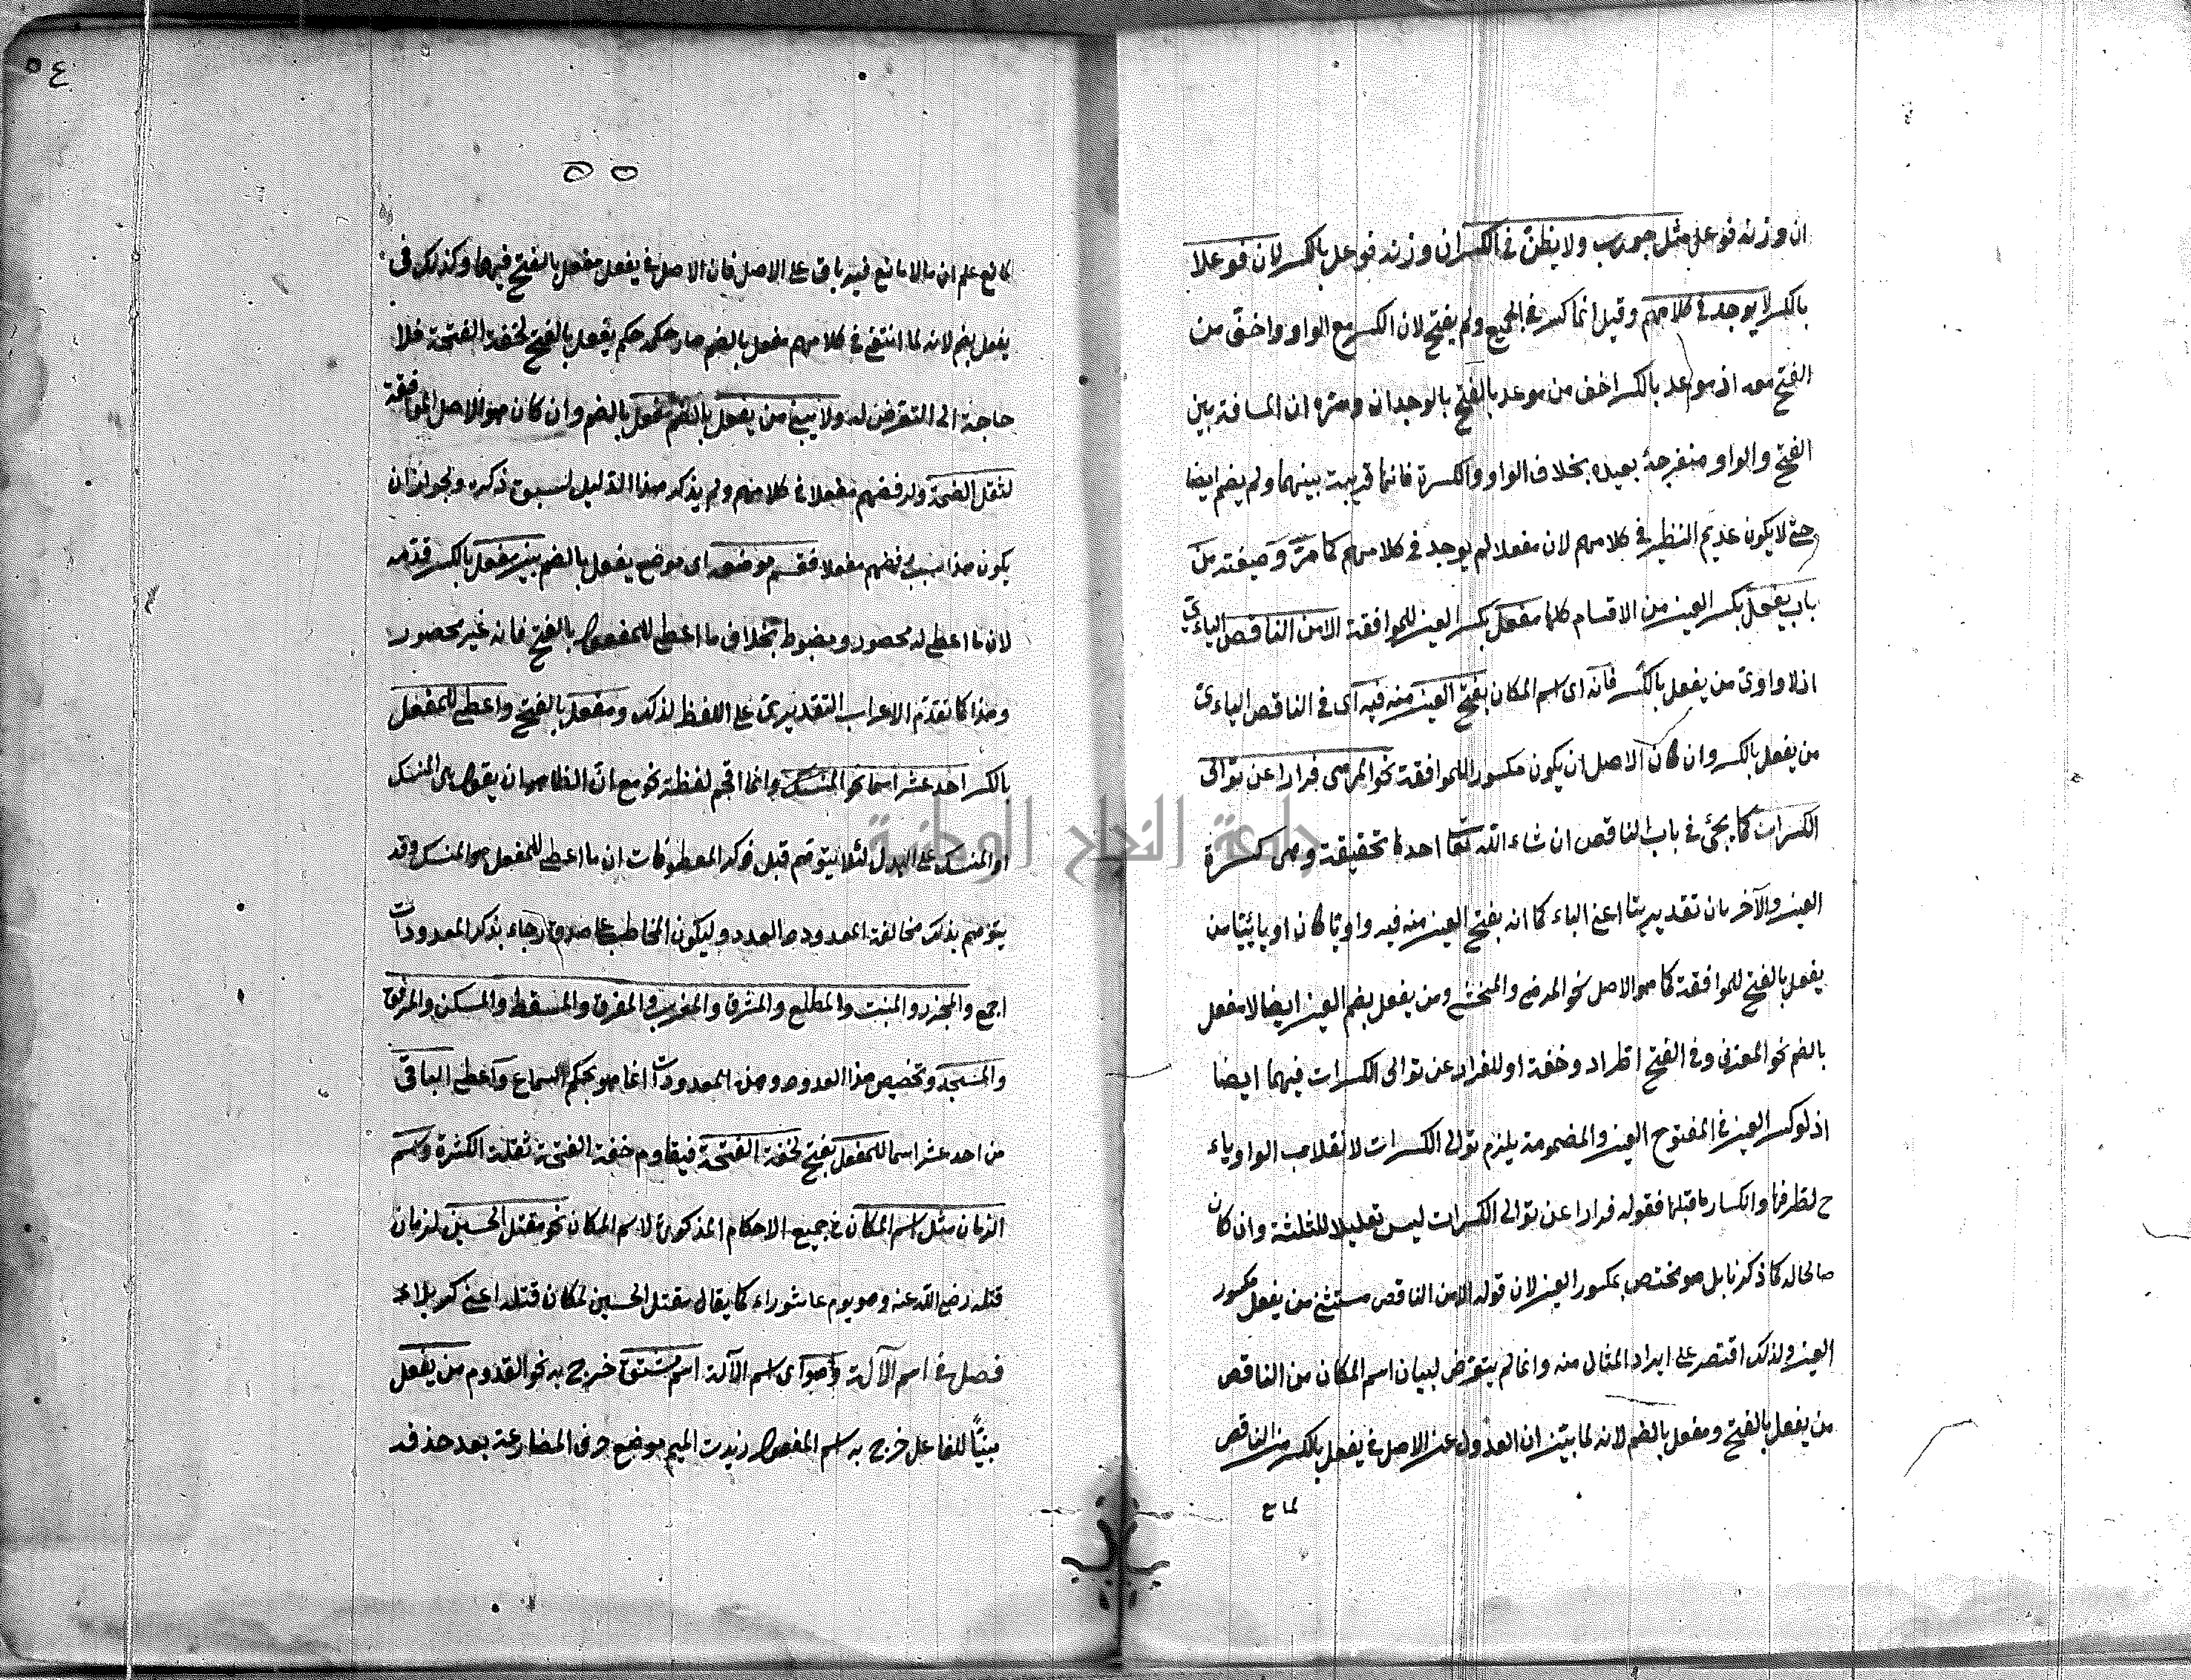 ان وزنه فوعل مثل جورب ولا يظن في الكسر ان وزنه فوعل بالكسر لان فوعلا
بالكسر لا يوجد في كلامهم وقيل انما كسر في الجميع ولم يفتح لان الكسر مع الواو واخف من
الفتح معه اذ موعد بالكسر اخف من موعد بالفتح بالوجدان وسره ان المسافة بين
الفتح والواو منفرجة بعيده بخلاف الواو والكسرة فانها قريبت بينهما ولم يضم ايضا
حتى لا يكون عديم النظير في كلامهم لان مفعلا لم يوجد في كلامهم كما مر وصيغته من
باب يفعل بكسر العين من الاقسام كلها مفعل بكسر العين للموافقة الا من الناقص اليائي
اذ لا واوى من يفعل بالكسر فانه اى اسم المكان بفتح العين منه فيه اى في الناقص الياءى
من يفعل بالكسر وان كان الاصل ان يكون مكسور اللموافقة نحو المرمى فرارا عن توالى
الكسرات كما يجئ في باب الناقص ان شاء الله تعا احدها تحقيقة وهى كسرة
العين والآخر يان تقديريتا اعنى الياء كما انه بفتح العين منه فيه واويا كان او يائيا من
يفعل بالفتح للموافقة كما هو الاصل نحو المرضى والمخشى ومن يفعل بضم العين ايضا لا مفعل
بالضم نحو المغزى وفي الفتح اطراد وخفة او للفرار عن توالى الكسرات فيهما ايضا
اذ لو كسر العين في المفتوح العين والمضمومة يلزم توالى الكسرات لانقلاب الواو ياء
ح لتطرفها وانكسار ما قبلها فقوله فرارا عن توالى الكسرات ليس تعليلا للثلثة وان كان
صالحا له كما ذكرنا بل هو مختص بمكسور العين لان قوله الا من الناقص مستثنى من يفعل مكسور
العين ولذلك اقتصر على ايراد المثال منه وانما لم يتعرض لبيان اسم المكان من الناقص
من يفعل بالفتح ومفعل بالضم لانه لما بين ان العدول عن الاصل في يفعل بالكسر من الناقص
لمانع
٥٤
لمانع علم ان ما لا مانع فيه باق على الاصل فان الاصل في يفعل مفعل بالفتح فيهما وكذلك في
يفعل بضم لانه لما انتفى في كلامهم مفعل بالضم صار حكمه حكم يفعل بالفتح لخفة الفتحة فلا
حاجة الى التعرض له ولا يبنى من يفعل بالضم مفعل بالضم وان كان هو الاصل الموافقة
لثقل الضمة ولرفضهم مفعلا في كلامهم ولم يذكر هذا الدليل لسبق ذكره ولجواز ان
يكون هذا سبب رفضهم مفعلا فقسم موضعه اى موضع يفعل بالضم بين مفعل بالكسر قدمه
لان ما اعطى له محصور ومضبوط بخلاف ما اعطى للمفعل بالفتح فانه غير محصور
وهذا كما تقدم الاعراب التقديرى على اللفظ لذلك ومفعل بالفتح واعطى للمفعل
بالكسر احد عشر اسما نحو المنسك وانما اقحم لفظة نحو مع ان الظاهر ان يقول هى المنسك
او المنسك على البدل لئلا يتوهم قبل ذكر المعطوفات ان ما اعطى للمفعل هو المنسك وقد
يتوهم بذلك مخالفة المعدود العدد وليكون المخاطب على صدق رجاء بذكر المعدودات
اجمع والمجزر والمنبت والمطلع والمشرق والمغرب والمفرق والمسقط والمسكن والمرفق
والمسجد وتخصيص هذا العدد وهذه المعدودات انما هو بحكم السماع واعطى الباقى
من احد عشر اسما للمفعل بفتح لخفة الفتحة فيقاوم خفة الفتحة ثقلت الكثرة واسم
الزمان مثل اسم المكان في جميع الاحكام المذكورة لاسم المكان نحو مقتل الحسين لزمان
قتله رضى الله عنه وهو يوم عاشوراء كما يقال مقتل الحسين لمكان قتله اعنى كربلاء
فصل في اسم الآلة وهو اى اسم الآلة اسم مشتق خرج به نحو القدوم من يفعل
مبنيا للفاعل خرج به اسم المفعول زيدت الميم موضع حرف المضارعة بعد حذفه
جامعة النجاح الوطنية